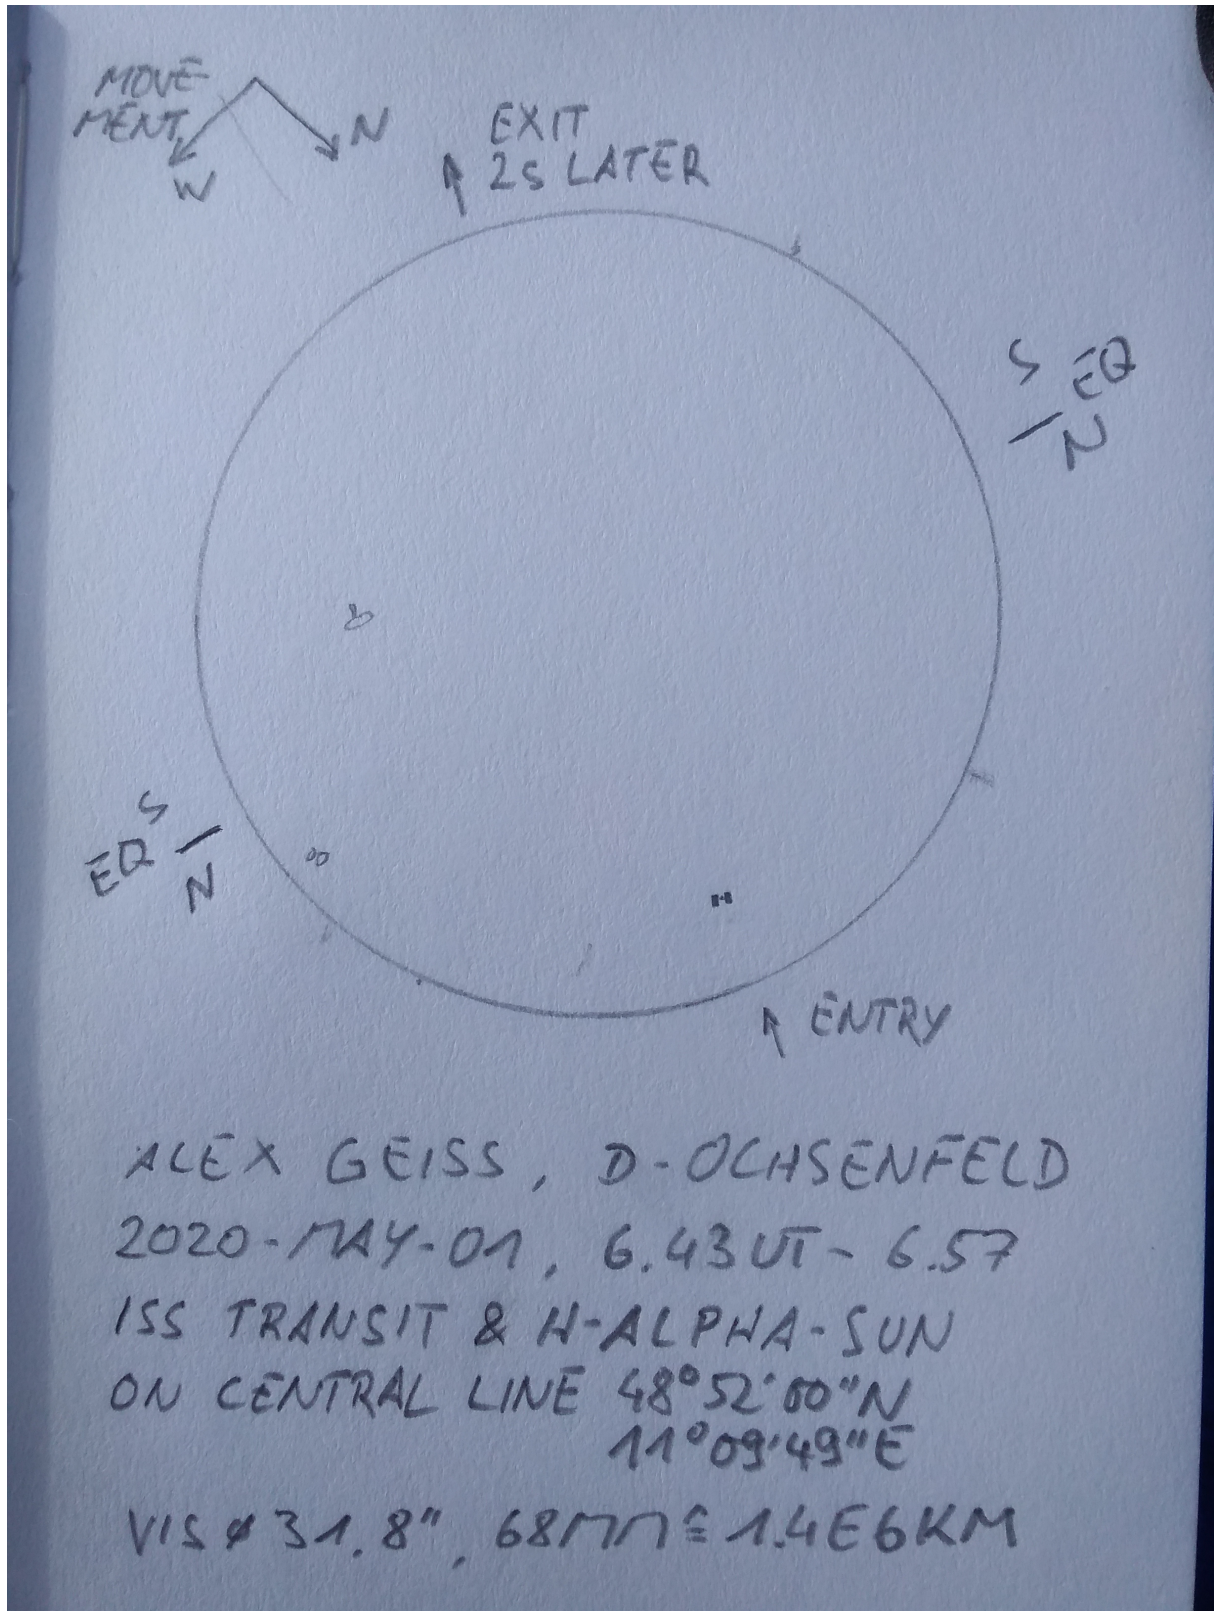 MOVE-
MENT
W
N
EXIT
2S LATER
S
EQ
N
S
EQ
N
ENTRY
ALEX GEISS, D-OCHSENFELD
2020-MAY-01, 6.43UT- 6.57
ISS TRANSIT & H-ALPHA-SUN
ON CENTRAL LINE 48°52'00"N
11°09'49"E
VIS ø 31.8", 68MM≙1.4E6KM